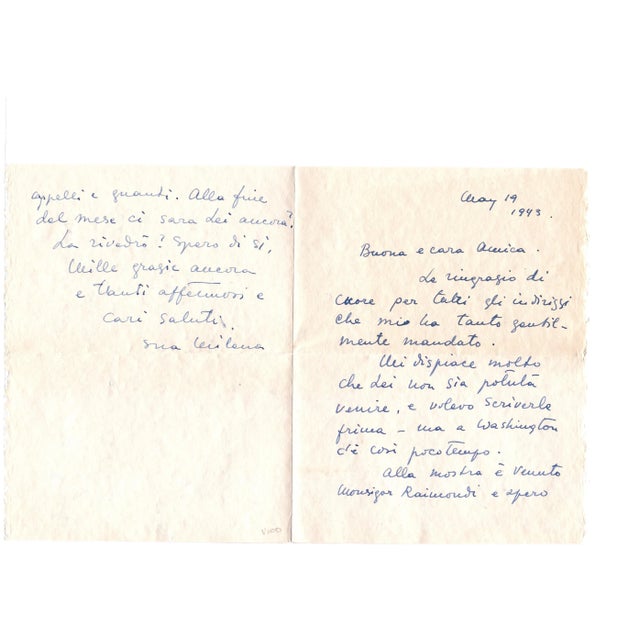 May 19
1943.
Buona e cara Amica.
La ringrazio di
cuore per tutti gli indirizzi
che mio ha tanto gentil-
mente mandato.
Mi dispiace molto
che Lei non sia potuta
venire, e volevo scriverle
prima – ma a Washington
c'è così poco tempo.
Alla mostra è venuto
Monsigor Raimondi e spero
cappelli e guanti. Alla fine
del mese ci sara Lei ancora?
La rivedrò? Spero di si,
Mille grazie ancora
e tanti affettuosi e
cari saluti.
sua Milena